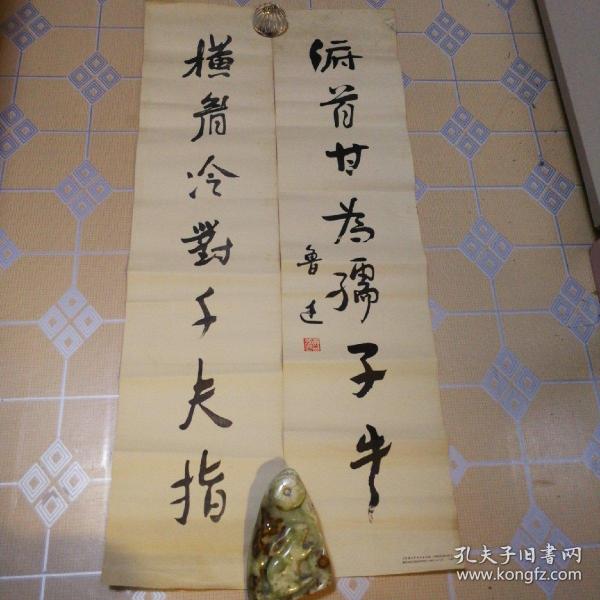 橫眉冷對千夫指
俯首甘為孺子牛
魯迅
孔夫子旧書网
www.kongfz.com